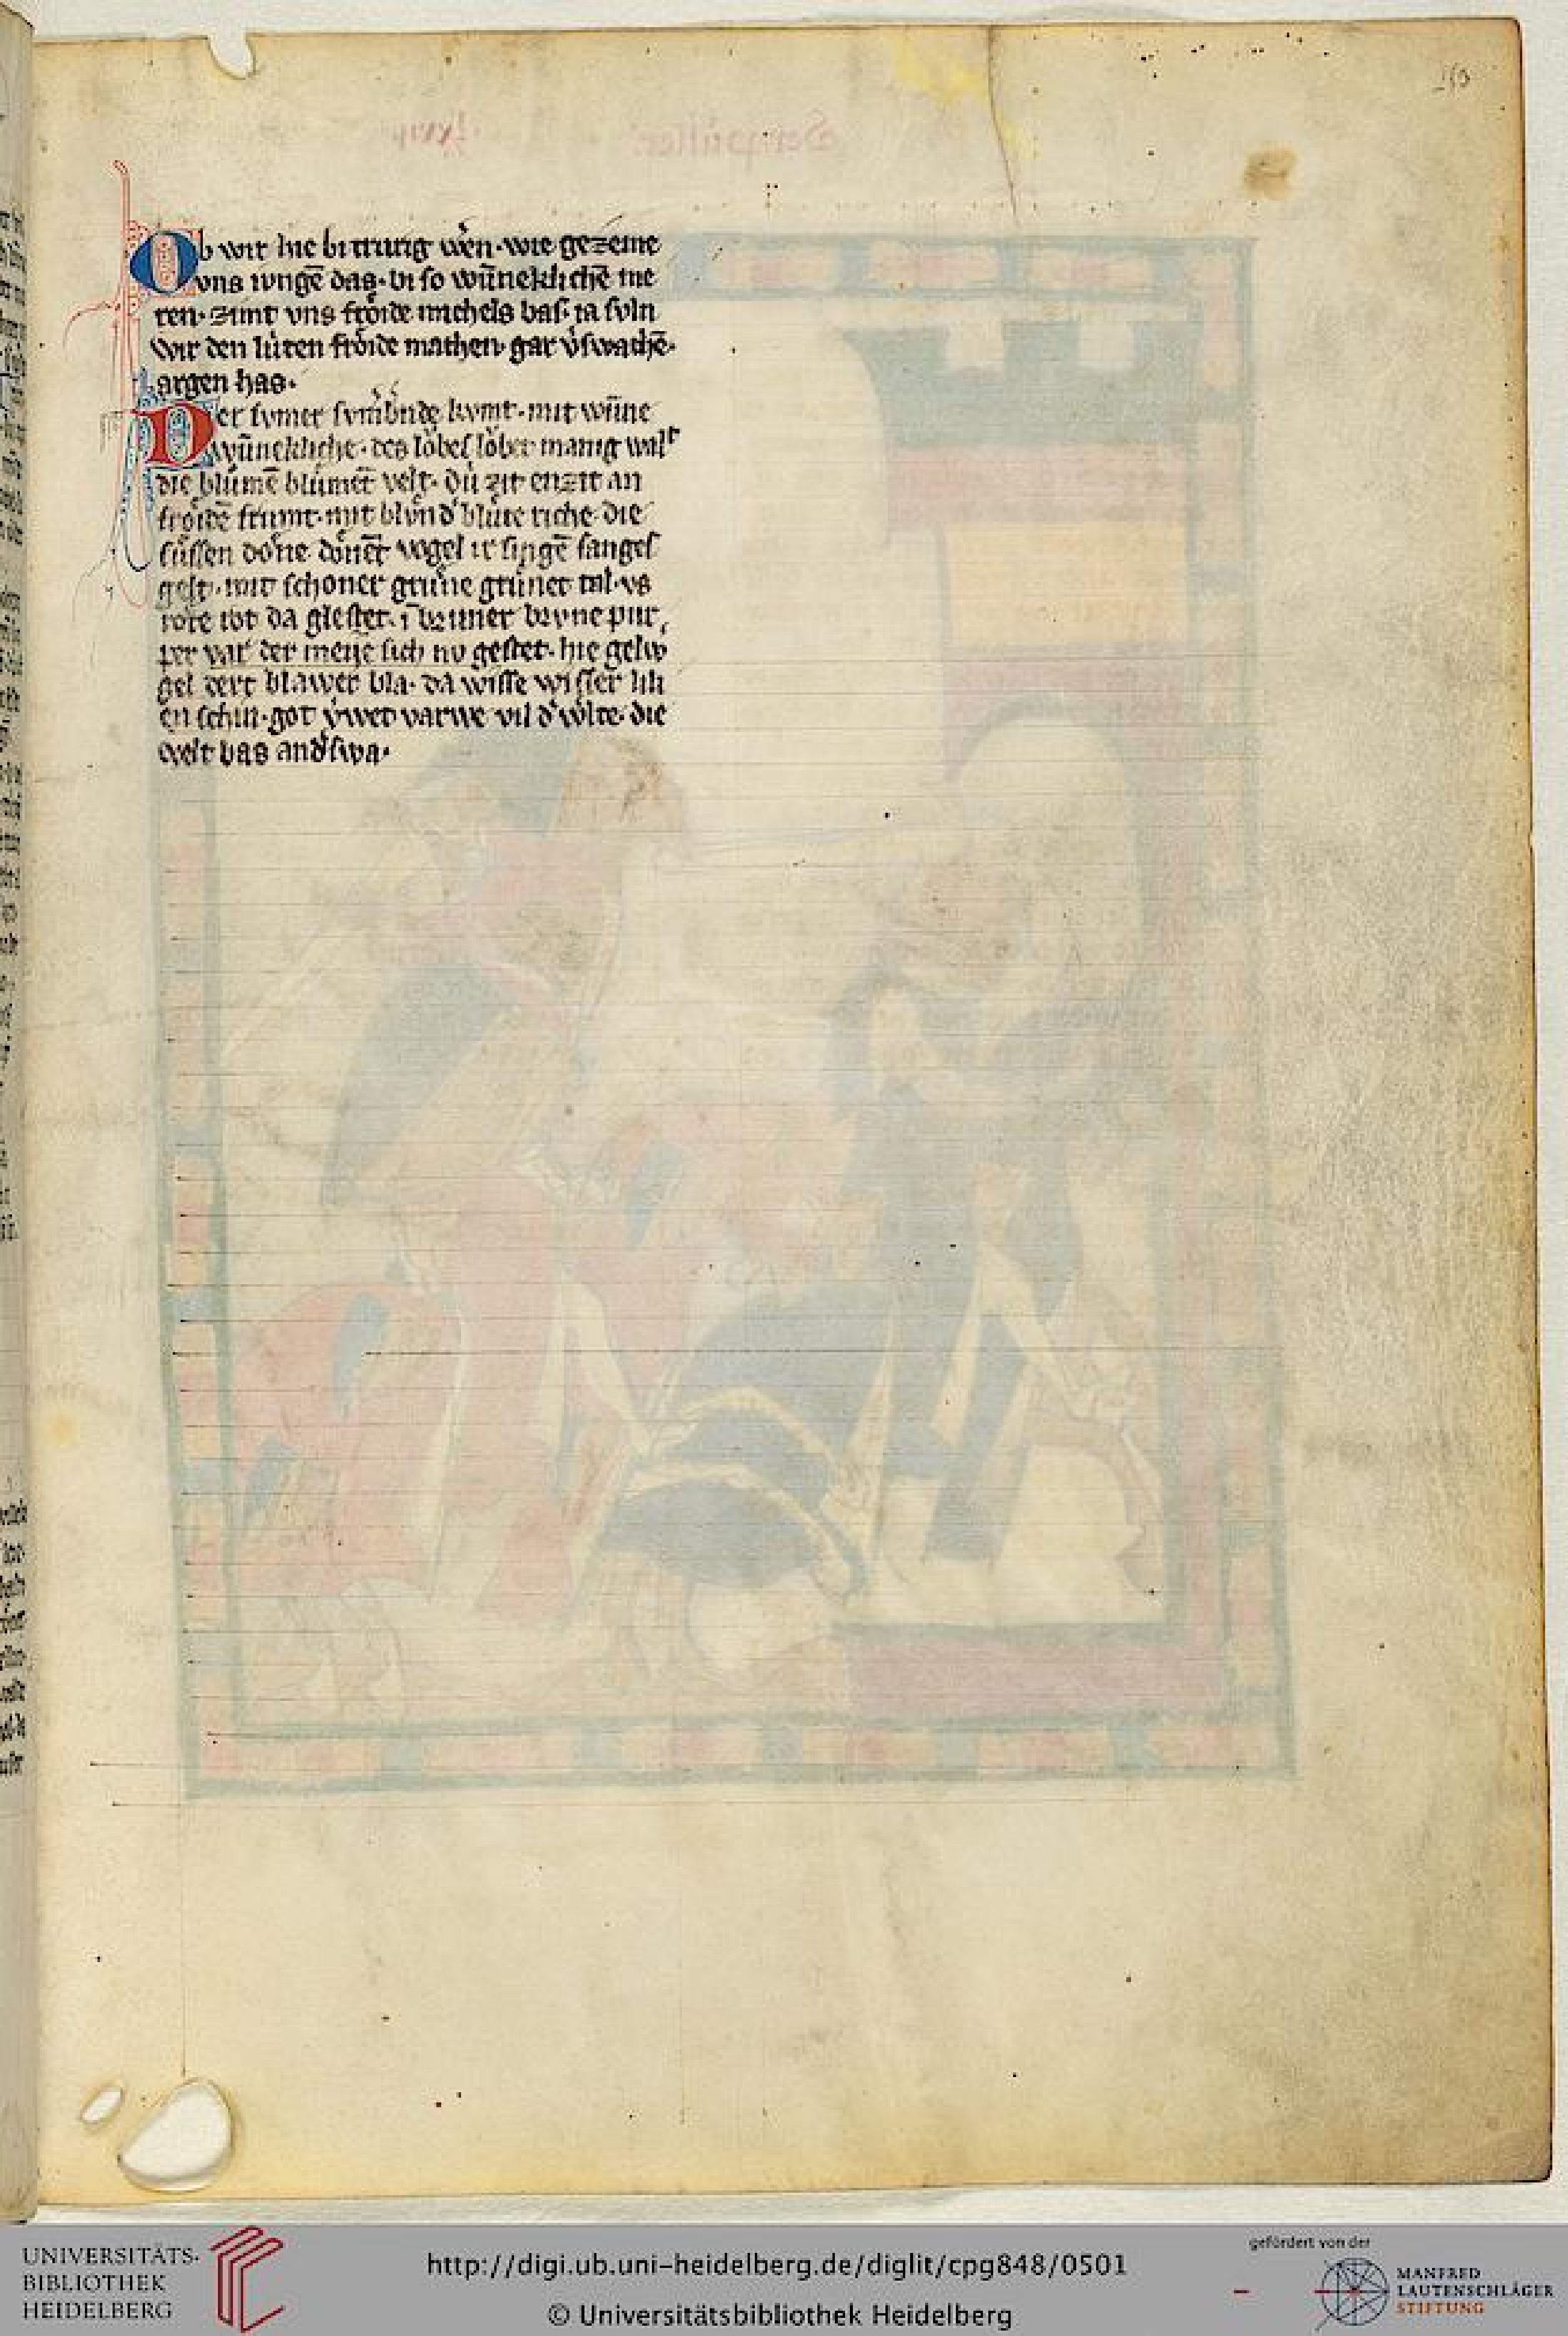 Ob wir hie bi trurig wẽn · wie gezeme
vns iungē das · bi so wūneklichē me
ren · zimt vns froͤide michels bas · ia svln
wir den luͥten froͤide machen · gar v̾swachē ·
argen has ·
Der svmer kvmt · mit wūne
wūnekliche · des loͮbes loͮber manig walt
die bluͦmē bluͦmēt velt · duͥ zit enzit an
froͤidē frumt · mit bluͤte riche · die
suͤssen doͤne doͤnēt vogel ir singē sanges
gelt · mit schoner gruͤne gruͤnet tal · vs
roͤte rot da glestet · ī bruner brvne pur
per var der meije sich nv gestet · hie gelw
gel dert blawer bla · da wisse wisser lili
en schin · got varwe vil die
welt bas and̾swa ·
UNIVERSITÄTS-
BIBLIOTHEK
HEIDELBERG
http://digi.ub.uni-heidelberg.de/diglit/cpg848/0501
© Universitätsbibliothek Heidelberg
gefördert von der
MANFRED
LAUTENSCHLÄGER
STIFTUNG